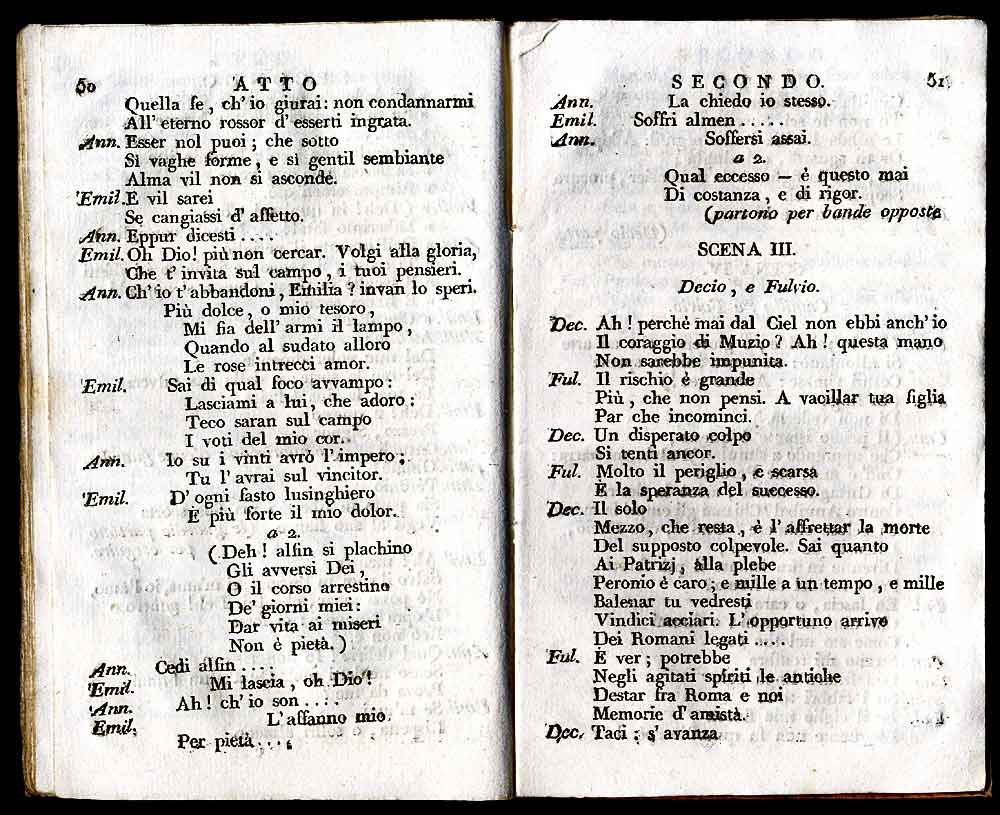 50 ATTO
Quella fe, ch' io giurai: non condannarmi
All' eterno rossor d' esserti ingrata.
Ann. Esser nol puoi; che sotto
Sì vaghe forme, e sì gentil sembiante
Alma vil non si asconde.
Emil. E vil sarei
Se cangiassi d' affetto.
Ann. Eppur dicesti ....
Emil. Oh Dio! più non cercar. Volgi alla gloria,
Che t' invita sul campo, i tuoi pensieri.
Ann. Ch' io t' abbandoni, Emilia? invan lo speri.
Più dolce, o mio tesoro,
Mi fia dell' armi il lampo,
Quando al sudato alloro
Le rose intrecci amor.
Emil. Sai di qual foco avvampo:
Lasciami a lui, che adoro:
Teco saran sul campo
I voti del mio cor.
Ann. Io su i vinti avrò l' impero;
Tu l' avrai sul vincitor.
Emil. D' ogni fasto lusinghiero
E più forte il mio dolor.
a 2.
(Deh! alfin si plachino
Gli avversi Dei,
O il corso arrestino
De' giorni miei:
Dar vita ai miseri
Non è pietà.)
Ann. Cedi alfin ....
Emil. Mi lascia, oh Dio!
Ann. Ah! ch' io son ....
Emil. L' affanno mio.
Per pietà ....
SECONDO. 51
Ann. La chiedo io stesso.
Emil. Soffri almen .....
Ann. Soffersi assai.
a 2.
Qual eccesso — è questo mai
Di costanza, e di rigor.
(partono per bande opposte
SCENA III.
Decio, e Fulvio.
Dec. Ah! perchè mai dal Ciel non ebbi anch' io
Il coraggio di Muzio? Ah! questa mano
Non sarebbe impunita.
Ful. Il rischio è grande
Più, che non pensi. A vacillar tua figlia
Par che incominci.
Dec. Un disperato colpo
Si tenti ancor.
Ful. Molto il periglio, e scarsa
È la speranza del successo.
Dec. Il solo
Mezzo, che resta, è l' affrettar la morte
Del supposto colpevole. Sai quanto
Ai Patrizj, alla plebe
Peronio è caro; e mille a un tempo, e mille
Balenar tu vedresti
Vindici acciari. L' opportuno arrivo
Dei Romani legati .....
Ful. È ver; potrebbe
Negli agitati spiriti le antiche
Destar fra Roma e noi
Memorie d' amistà.
Dec. Taci; s' avanza